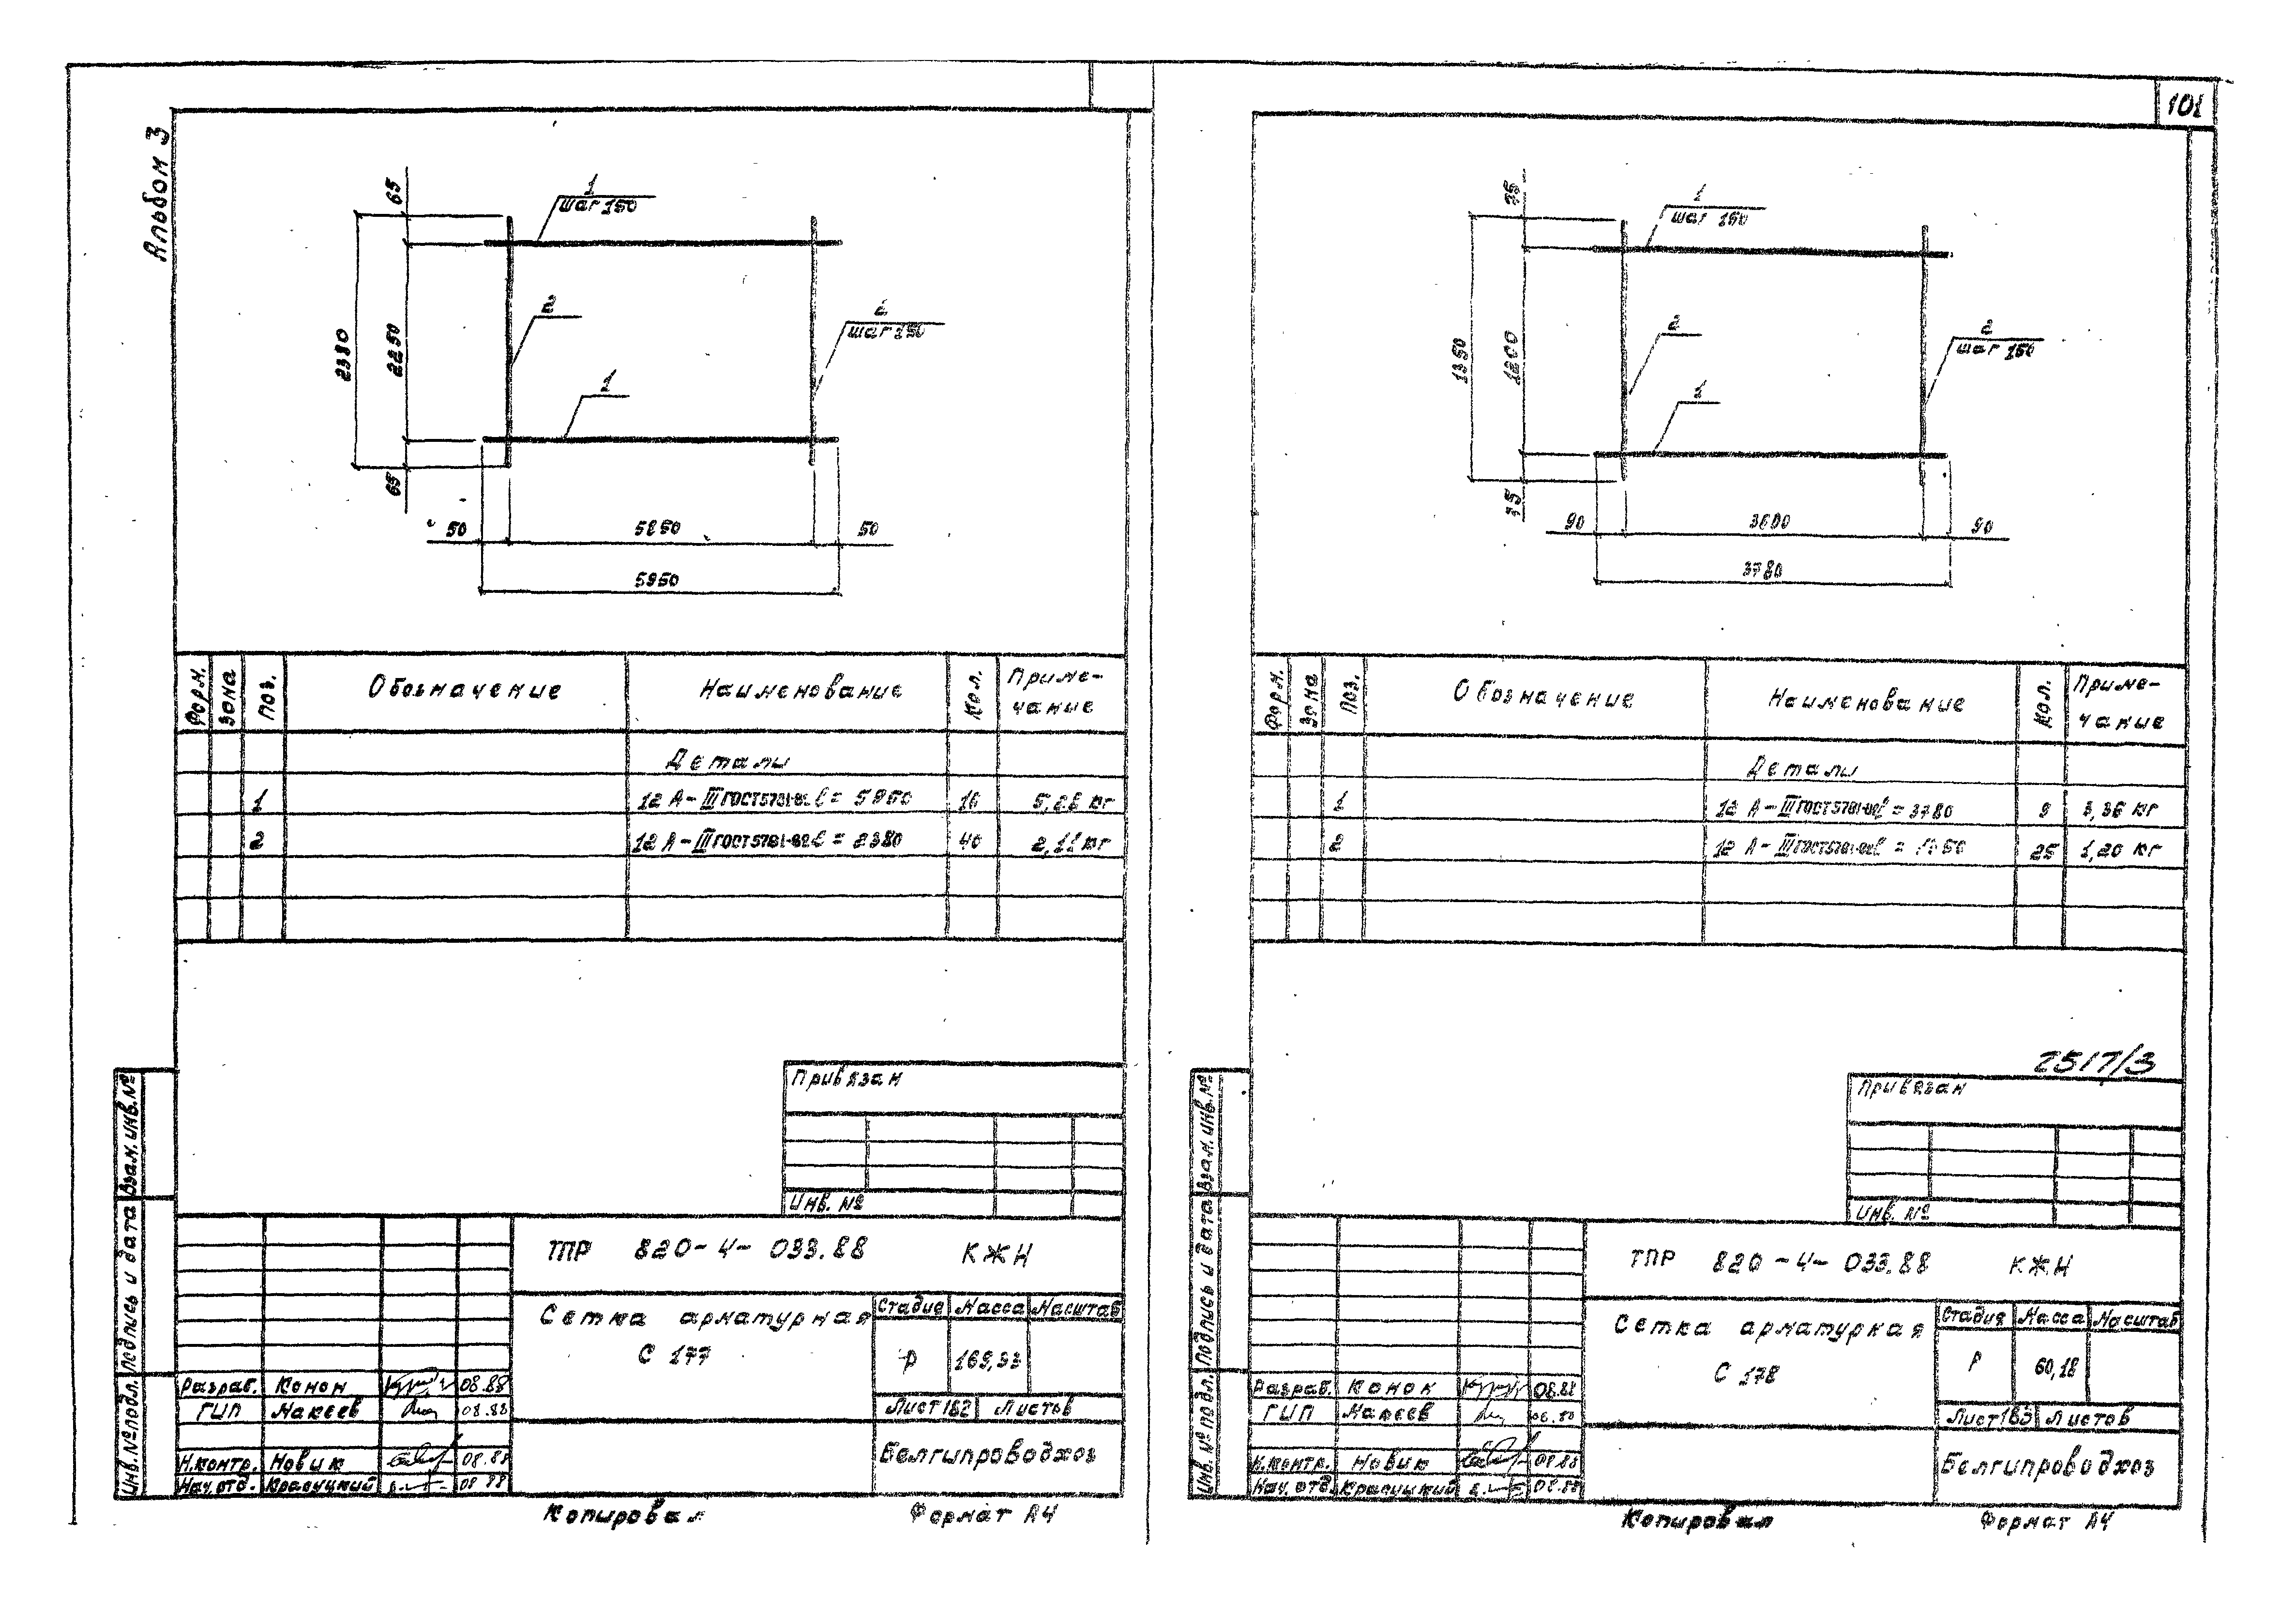 Альбом 3
65
1
шаг 150
2380
2250
2
2
шаг 150
1
65
50
5850
50
5950
Форм.
Зона
Поз.
Обозначение
Наименование
Кол.
Приме-
чание
Детали
1
12 А-III ГОСТ 5781-82 ℓ= 5950
16
5,28 кг
2
12 А-III ГОСТ 5781-82 ℓ= 2380
40
2,11 кг
Привязан
Инв. №
Взам. инв. №
Подпись и дата
Инв. № подл.
ТПР 820-4-033.88 КЖН
Сетка арматурная
С 177
Стадия Масса Масштаб
Р
Лист 162 Листов
Белгипроводхоз
Разраб. Конон 08.88
ГИП Макеев 08.88
Н.контр. Новик 08.88
Нач.отд. Красуцкий 08 88
Копировал
Формат А4
101
1
шаг 150
1350
1200
2
2
шаг 150
1
90
3600
90
3780
Форм.
Зона
Поз.
Обозначение
Наименование
Кол.
Приме-
чание
Детали
1
12 А-III ГОСТ 5781-82 ℓ = 3780
9
3,36 кг
2
12 А-III ГОСТ 5781-82 ℓ = 1350
25
1,20 кг
2517/3
Привязан
Инв. №
Взам. инв. №
Подпись и дата
Инв. № подл.
ТПР 820-4-033.88 КЖН
Сетка арматурная
С 178
Стадия Масса Масштаб
Р 60,18
Лист 163 Листов
Белгипроводхоз
Разраб. Конон 08.88
ГИП Макеев
Н.контр. Новик 08.88
Нач. отд. Красуцкий 08.88
Копировал
Формат А4